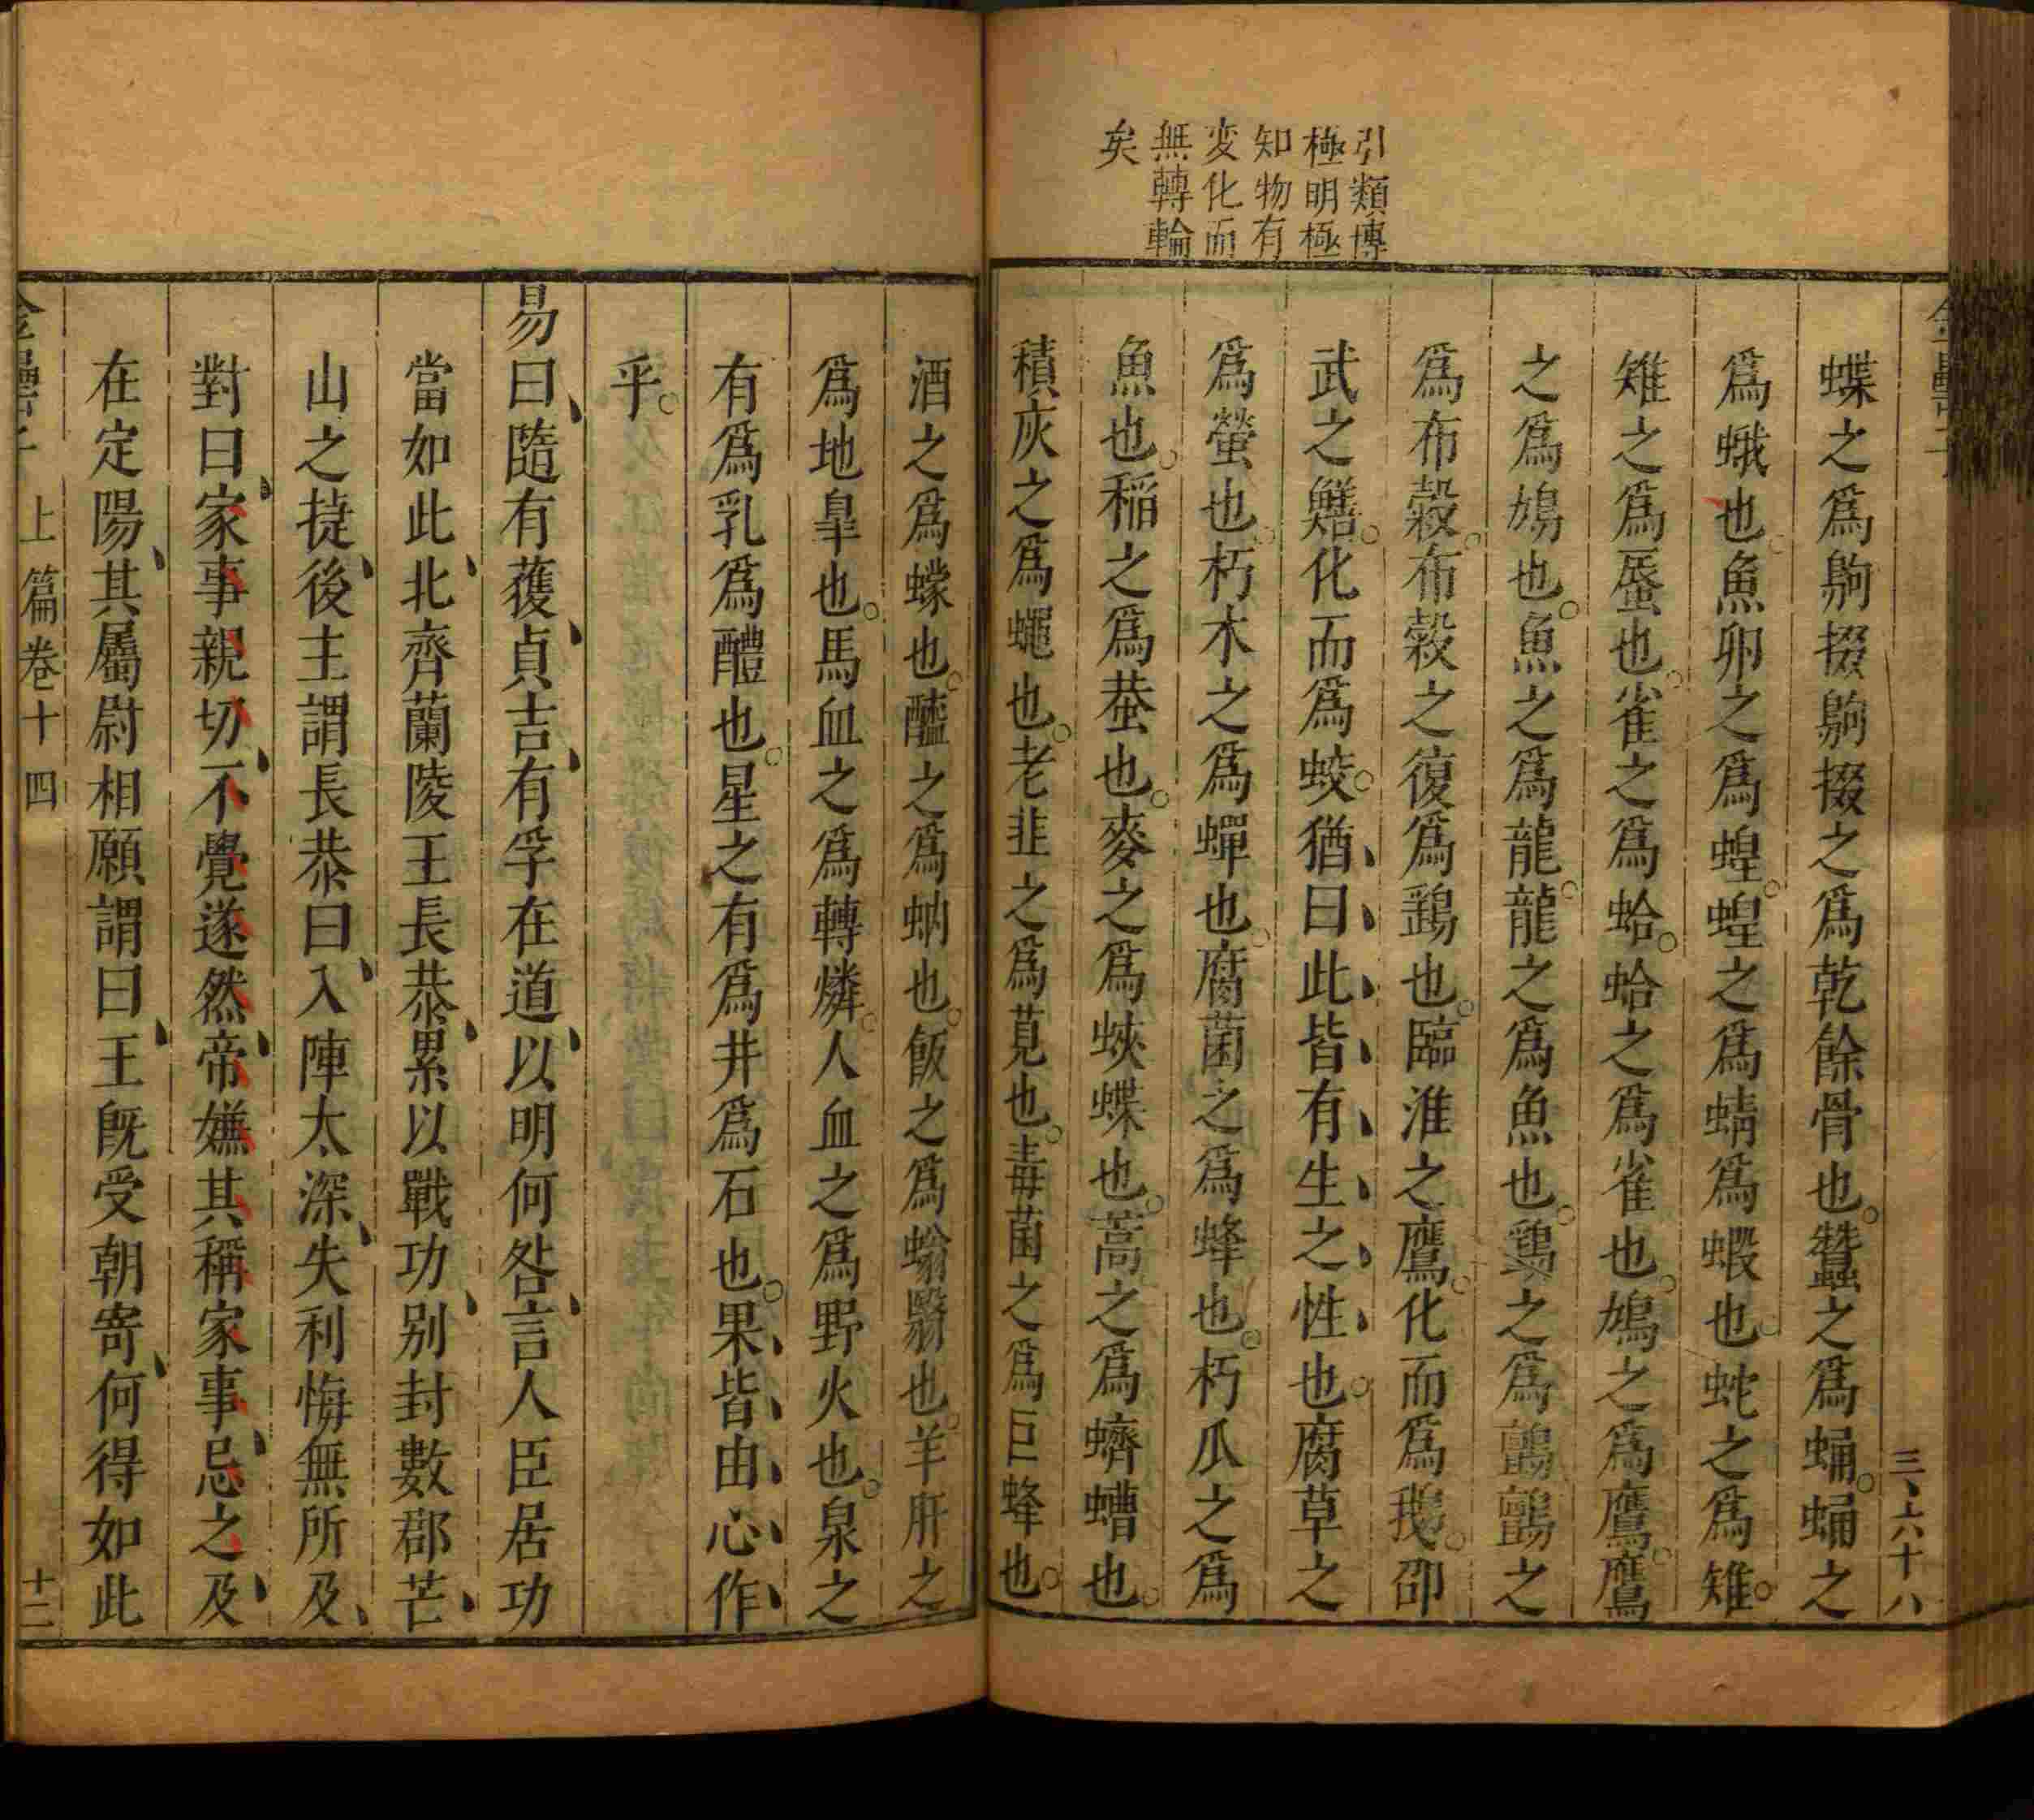 引類博
極明極
知物有
変化而
無轉輪
矣
三、六十八
蝶之爲鴝掇鴝掇之爲乾餘骨也蠶之爲蛹蛹之
爲蛾也魚卵之爲蝗蝗之爲蜻爲蝦也蛇之爲雉
雉之爲蜃也雀之爲蛤蛤之爲雀也鳩之爲鷹鷹
之爲鳩也魚之爲龍龍之爲魚也鶉之爲鸇鸇之
爲布穀布穀之復爲鷂也臨淮之鷹化而爲鵝卭
武之鱔化而爲蛟猶曰此皆有生之性也腐草之
爲螢也朽木之爲蟬也腐菌之爲蜂也朽瓜之爲
魚也稲之爲蛬也麥之爲蛺蝶也蒿之爲蠐螬也
積灰之爲蠅也老韭之爲莧也毒菌之爲巨蜂也
酒之爲蠓也醯之爲蚋也飯之爲螉䗿也羊肝之
爲地臯也馬血之爲轉燐人血之爲野火也泉之
有爲乳爲醴也星之有爲井爲石也果皆由心作
乎
易曰隨有蒦貞吉有孚在道以明何咎言人臣居功
當如此北齊蘭陵王長恭累以戰功别封數郡芒
山之㨗後主謂長恭曰入陣太深失利悔無所及
對曰家事親切不覺遂然帝嫌其稱家事忌之及
在定陽其屬尉相願謂曰王旣受朝寄何得如此
金罍子 上篇卷十四 十二